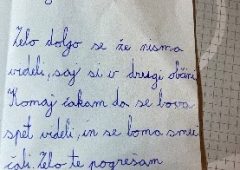 Zelo dolgo se že nisma
videli, saj si v drugi občini
Komaj čakam da se bova
spet videli, in se boma smej
čali. Zelo te pogrešam